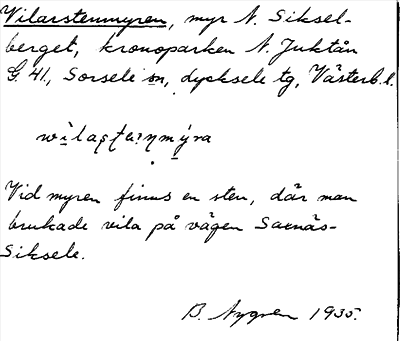 Vilarstenmyren, myr N. Siksel-
berget, kronoparken N. Juktån
G. 41, Sorsele sn, Lycksele tg, Västerb. l.
Vid myren finns en sten, där man
brukade vila på vägen Saxnäs-
Siksele.
B. Nygren 1935.